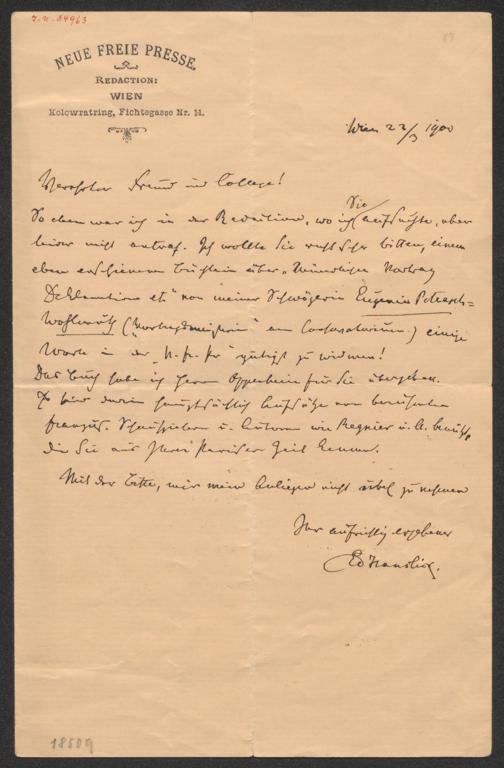 I.N. 84963
89
NEUE FREIE PRESSE.
REDACTION:
WIEN
Kolowratring, Fichtegasse Nr. 11.
Wien 22/3 1900
Verehrter Freund und College!
So eben war ich in der Redaction, wo ich Sie aufsuchte, aber
leider nicht antraf. Ich wollte Sie recht sehr bitten, einem
eben erschienenen Büchlein über „Mündlichen Vortrag
Deklamation etc" von meiner Schwägerin Eugenie Petrasch-
Wohlmuth ("Vortragsmeisterin" am Conservatorium) einige
Worte in der „N. fr. Pr" gütigst zu widmen!
Das Buch habe ich Herrn Oppenheim für Sie übergeben.
Es sind darin hauptsächlich Aufsätze von berühmten
französ. Schauspielern u. Autoren wie Regnier u. A. benützt,
die Sie aus Ihrer Pariser Zeit kennen.
Mit der Bitte, mir mein Anliegen nicht übel zu nehmen
Ihr aufrichtig ergebener
Ed Hanslick.
18509